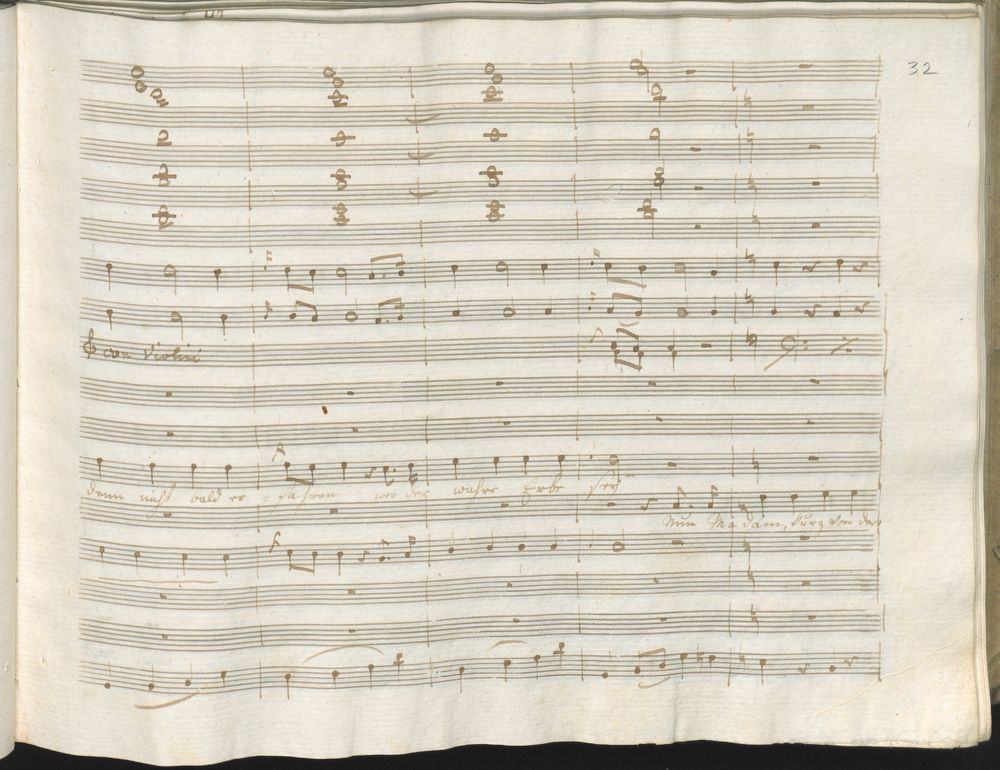 32
con Violini
denn nicht bald er - fahren wer der wahre Erbe sey
Nun Madam, kurz von der